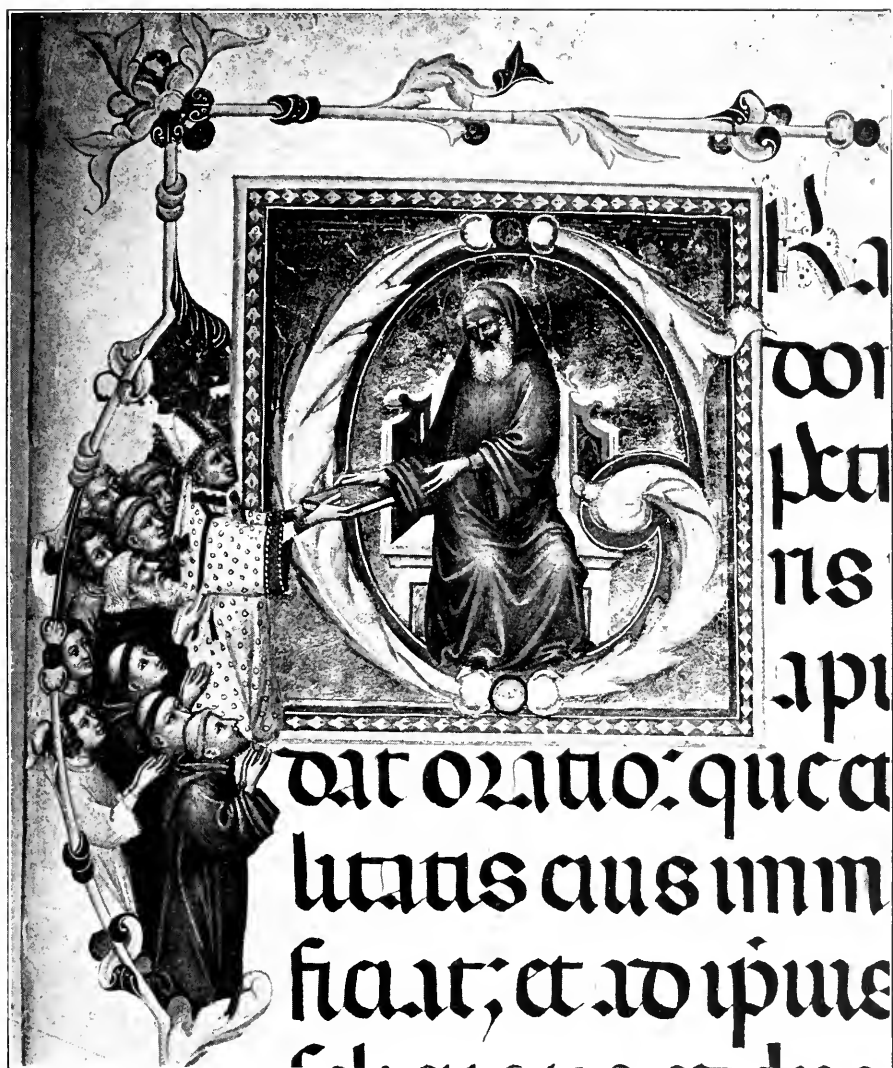 GRa
don
peti
ris
api
dat oratio: que et
litatis eius imm
ficiat; et ad ip̄ius